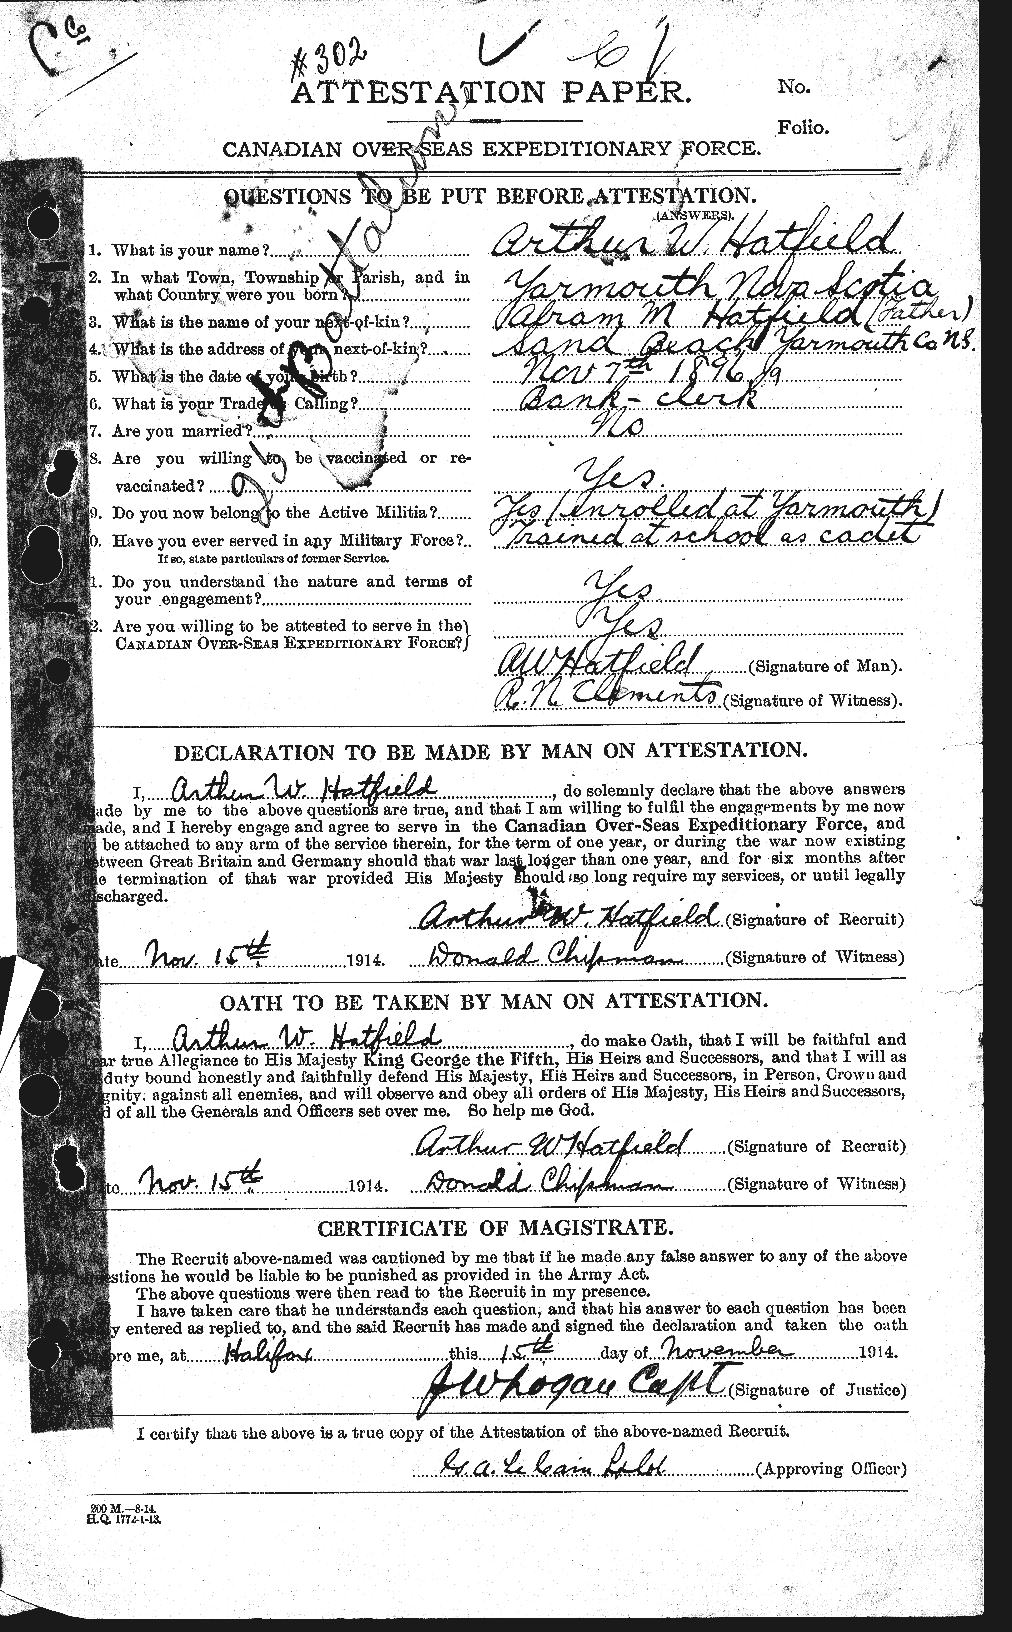 C Coy
#302
ATTESTATION PAPER.
No.
Folio.
CANADIAN OVER-SEAS EXPEDITIONARY FORCE.
QUESTIONS TO BE PUT BEFORE ATTESTATION.
(ANSWERS).
1. What is your name? Arthur W. Hatfield
2. In what Town, Township or Parish, and in
what Country were you born? Yarmouth Nova Scotia
3. What is the name of your next-of-kin? Abram M Hatfield (Father)
4. What is the address of your next-of-kin? Sand Beach Yarmouth Co N.S.
5. What is the date of your birth? Nov 7th 1896
6. What is your Trade or Calling? Bank-clerk
7. Are you married? No
8. Are you willing to be vaccinated or re-
vaccinated? Yes.
9. Do you now belong to the Active Militia? Yes (enrolled at Yarmouth)
0. Have you ever served in any Military Force? Trained at school as cadet
If so, state particulars of former Service.
1. Do you understand the nature and terms of
your engagement? Yes
2. Are you willing to be attested to serve in the
CANADIAN OVER-SEAS EXPEDITIONARY FORCE? Yes
A W Hatfield (Signature of Man).
R. N. Clements (Signature of Witness).
25 Battalion
DECLARATION TO BE MADE BY MAN ON ATTESTATION.
I, Arthur W. Hatfield, do solemnly declare that the above answers
ade by me to the above questions are true, and that I am willing to fulfil the engagements by me now
ade, and I hereby engage and agree to serve in the Canadian Over-Seas Expeditionary Force, and
be attached to any arm of the service therein, for the term of one year, or during the war now existing
etween Great Britain and Germany should that war last longer than one year, and for six months after
e termination of that war provided His Majesty should so long require my services, or until legally
scharged.
Arthur W. Hatfield (Signature of Recruit)
ate Nov. 15th 1914. Donald Chipman (Signature of Witness)
OATH TO BE TAKEN BY MAN ON ATTESTATION.
I, Arthur W. Hatfield, do make Oath, that I will be faithful and
ar true Allegiance to His Majesty King George the Fifth, His Heirs and Successors, and that I will as
duty bound honestly and faithfully defend His Majesty, His Heirs and Successors, in Person, Crown and
gnity, against all enemies, and will observe and obey all orders of His Majesty, His Heirs and Successors,
d of all the Generals and Officers set over me. So help me God.
Arthur W Hatfield (Signature of Recruit)
te Nov. 15th 1914. Donald Chipman (Signature of Witness)
CERTIFICATE OF MAGISTRATE.
The Recruit above-named was cautioned by me that if he made any false answer to any of the above
estions he would be liable to be punished as provided in the Army Act.
The above questions were then read to the Recruit in my presence.
I have taken care that he understands each question, and that his answer to each question has been
y entered as replied to, and the said Recruit has made and signed the declaration and taken the oath
ore me, at Halifax this 15th day of November 1914.
J W Logan Capt (Signature of Justice)
I certify that the above is a true copy of the Attestation of the above-named Recruit.
G. A. LeCain Lt Col (Approving Officer)
200 M.—8-14.
H.Q. 1772-1-13.